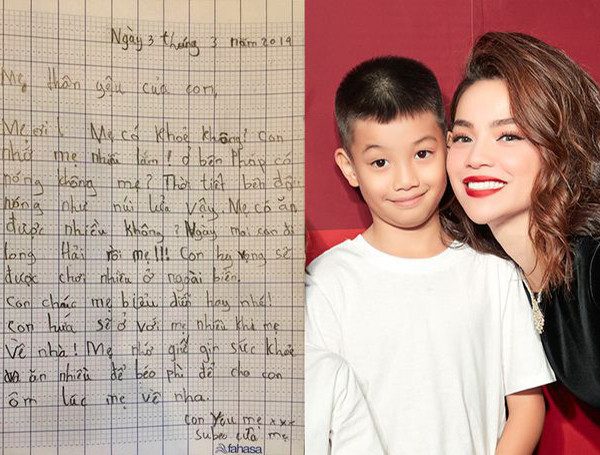 Ngày 3 tháng 3 năm 2019
Mẹ thân yêu của con,
Mẹ ơi! Mẹ có khoẻ không? Con
nhớ mẹ nhiều lắm! Ở bên Pháp có
nóng không mẹ? Thời tiết bên
nóng như núi lửa vậy. Mẹ có ăn
được nhiều không? Ngày mai con đi
long Hải rồi mẹ!!! Con hy vọng sẽ
được chơi nhiều ở ngoài biển.
Con chúc mẹ biểu diễn hay nhé!
Con hứa sẽ ở với mẹ nhiều khi mẹ
về nhà! Mẹ nhớ giữ gìn sức khoẻ
và ăn nhiều để béo phì để cho con
ôm lúc mẹ về nha.
con yêu mẹ xxx
subeo của mẹ
fahasa